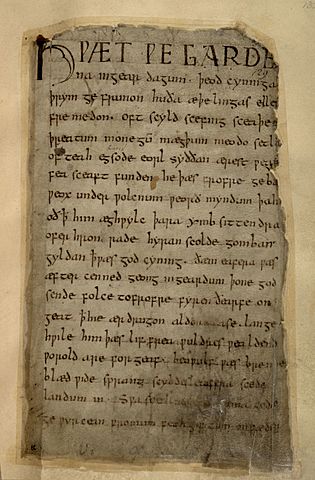 HǷÆT ǷE GARDE
na ingear dagum . þeod cyninga
þrym ge frunon huða æþelingas elle
fre medon. oft scyld scefing sceaþe
þreatum monegū mægþum meodo setla
of teah egsode eorl syððan ærest ƿear
fea sceaft funden he þæs frofre geba
ƿeox under ƿolcnum ƿeorð myndum þah
oð ꝥ him æghƿylc þara ymb sittendra
ofer hron rade hyran scolde gomban
gyldan ꝥ ƿæs god cyning. ðæm eafera ƿæs
æfter cenned geong ingeardum þone god
sende folce tofrofre fyren ðearfe on
geat ꝥ hie ær drugon aldor ase. lange
hƿile him þæs lif frea ƿuldres ƿealdend
ƿorold are for geaf. beoƿulf ƿæs breme
blæd ƿide sprang scyldes eafera scede
landum in. Sƿa guma gode
ge ƿyrcean fromum feoh giftum